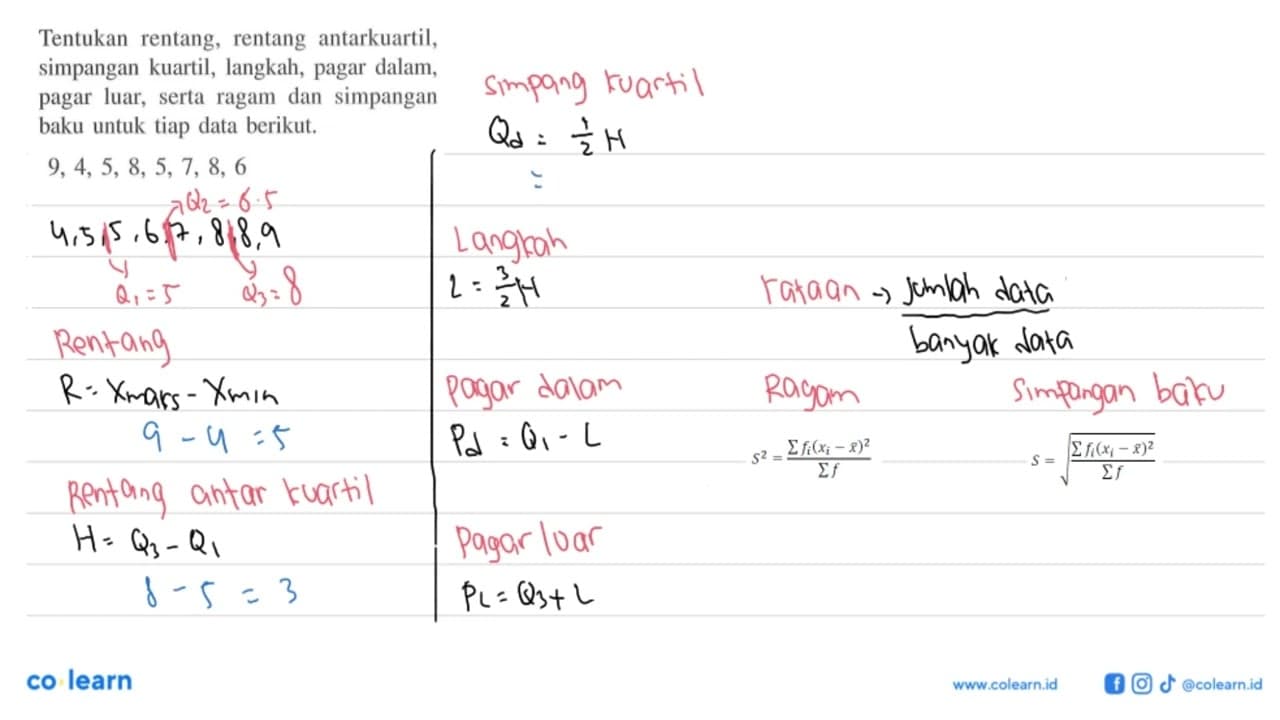 Tentukan rentang, rentang antarkuartil,
simpangan kuartil, langkah, pagar dalam,
pagar luar, serta ragam dan simpangan
baku untuk tiap data berikut.
9, 4, 5, 8, 5, 7, 8, 6
Q2 = 6.5
4,5,5,6,7,8,8,9
Q1 = 5 Q3 = 8
Rentang
R = Xmaks - Xmin
9 - 4 = 5
Rentang antar kuartil
H = Q3 - Q1
8 - 5 = 3
Simpang kuartil
Qd = 1/2 H
=
Langkah
L = 3/2 H
Pagar dalam
Pd = Q1 - L
Pagar luar
PL = Q3 + L
rataan → jumlah data
banyak data
Ragam
S² = Σ fᵢ(xᵢ − x̄)² / Σf
Simpangan baku
S = √(Σ fᵢ(xᵢ − x̄)² / Σf)
co learn
www.colearn.id
@colearn.id